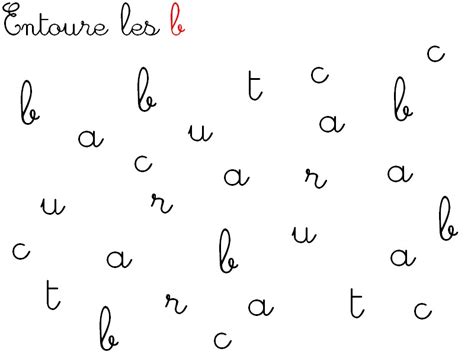 Entoure les b
c
b b t c b
a u a
c a r a
u r b
c a b u a
t r a t c
b c